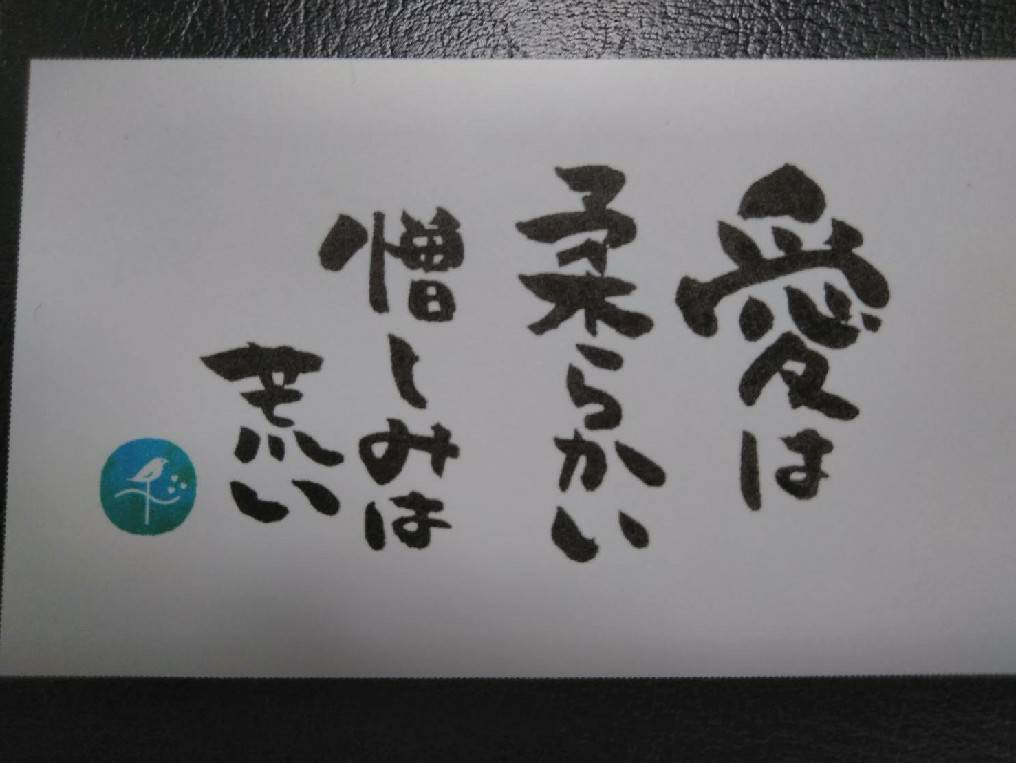 愛は
柔らかい
憎しみは
荒い